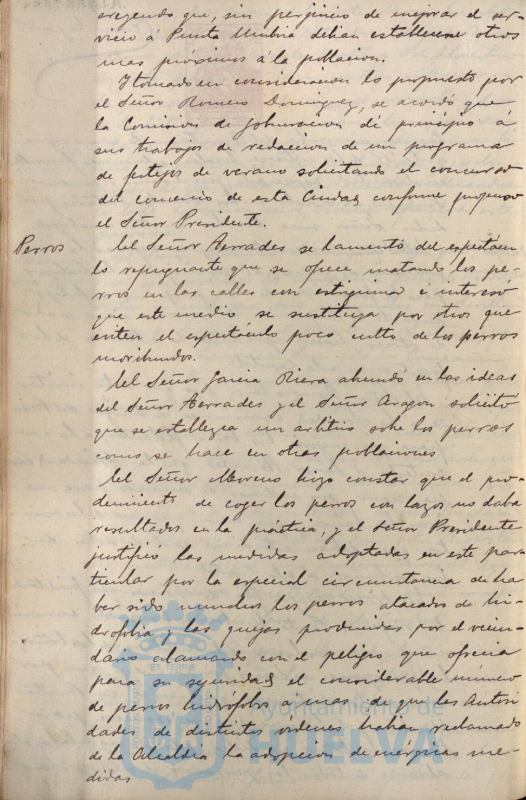 creyendo que, sin perjuicio de mejorar el ser-
vicio á Punta Umbria debian establecerse otros
mas próximos á la poblacion.
Y tomado en consideracion lo propuesto por
el Señor Romero Dominguez, se acordó que
la Comision de Gobernacion dé principio á
sus trabajos de redaccion de un programa
de festejos de verano solicitando el concurso
del comercio de esta Ciudad conforme propuso
el Señor Presidente.
Perros
El Señor Terrades se lamentó del espectacu-
lo repugnante que se ofrece matando los pe-
rros en las calles con estrignina é interesó
que este medio se sustituya por otros que
eviten el espectáculo poco culto de los perros
moribundos.
El Señor Garcia Riera abundó en las ideas
del Señor Terrades y el Señor Aragon solicitó
que se establezca un arbitrio sobre los perros
como se hace en otras poblaciones
El Señor Moreno hizo constar que el pro-
cedimiento de coger los perros con lazos no daba
resultados en la práctica, y el Señor Presidente
justificó las medidas adoptadas en este par-
ticular por la especial circunstancia de ha-
ber sido muchos los perros atacados de hi-
drofobia y las quejas producidas por el vecin-
dario clamando con el peligro que ofrecia
para su seguridad el considerable número
de perros hidrófobos á mas de que las Autori-
dades de distintos órdenes habian reclamado
de la Alcaldia la adopcion de energicas me-
didas
Ayuntamiento de
HUELVA